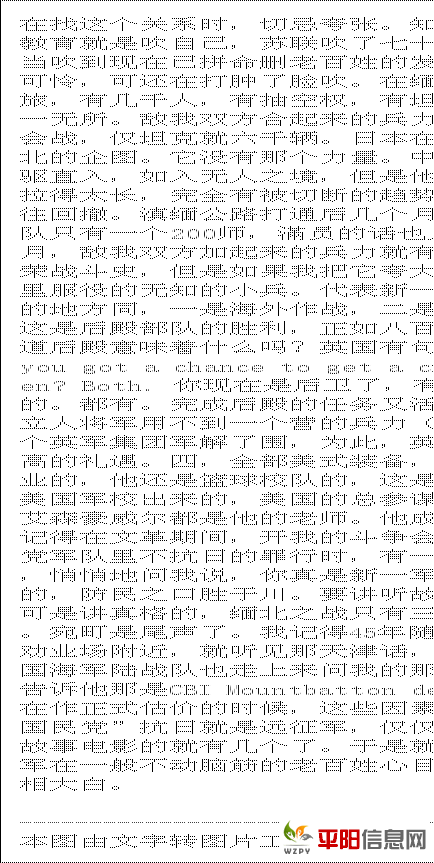 在找这个关系时，切忌夸张。
教育就是吹自己，苏联吹了七十
当吹到现在已拆
可怜，可还在打肿了脸吹。在缅
族，有几千人，有抽空校，有坦
一无所。敌我双方合起来的兵力
会战，仅坦克就六千辆。日本在
北的企图。它没有那个力量。中
驱直入，如入无人之境，但是他
拉得太长，完全有被切断的
往回撤。滇缅公路打通后几个月
队只有一个200师，满员的话也
月，敌我双方加起来的兵力就有
荣战斗史，但是如果我把它夸大
里服役的无知的小兵。代表新一
的地方间，一是海外作战，一是
这是后殿部队的胜利，正如人百
道后殿意味着什么吗？英国有句
you got a chance to get a c
en? Both. 你现在是后卫了，有
的。都有。完成后殿的任务又活
立人将军用不到一个营的兵力（
个英军集团军解了围，为此，英
高的礼遇。四，全部美式装备，
业的，他还是篮球校队的，这是
美国军校出来的，美国的总参谋
艾森豪威尔都是他的老师。他成
记得在文革期间，开我的斗争会
党军队里不抗日的罪行时，有一
，悄悄地问我说，你真是新一军
的，防民之口胜于川。要讲听故
可是讲真格的，缅北之战只有三
。宛町是尾声了。我记得45年随
动业场附近，就听见那天津话，
国海军陆战队他走上来问我的那
告诉他那是CBI Mountbatton de
在作正式估价的时候，这些因素
国民党”抗日就是远征军，仅仅
故事电影的就有几个了。于是就
军在一般不动脑筋的老百姓心目
相大白。
本图由文字转图片工
平阳信息网
WZPY